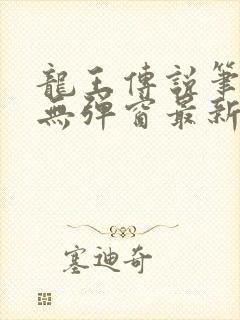 龍王傳說筆
無彈窗最新
塞迪奇